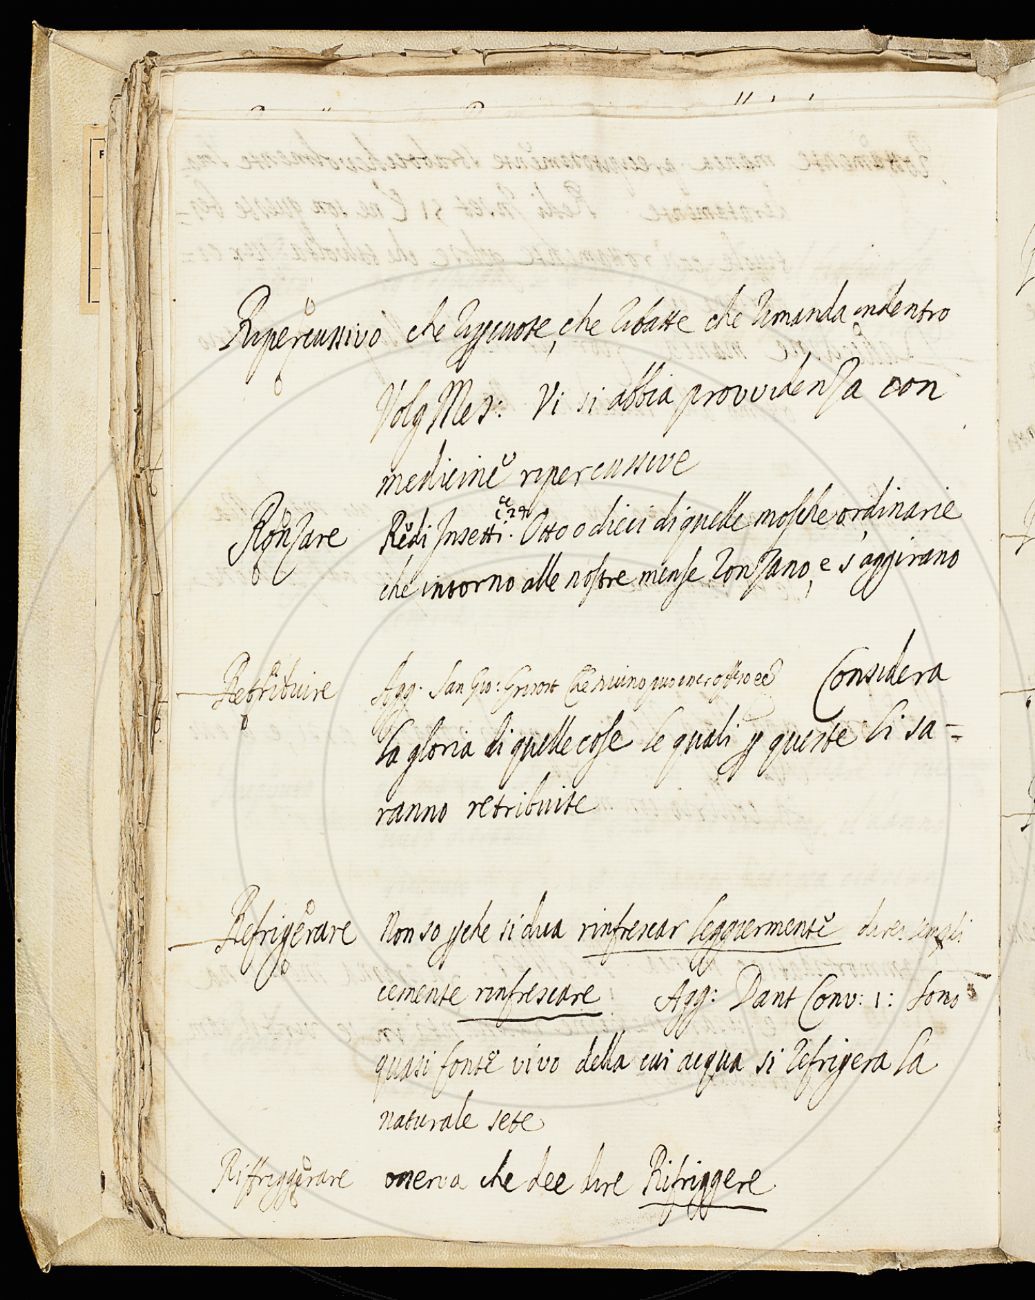 Ripercussivo che ripercuote, che ribatte che rimanda indentro
Volg Mes: Vi si abbia provvidenza con
medicine ripercussive
Ronzare Redi Insetti. Otto o dieci di quelle mosche ordinarie
che intorno alle nostre mense ronzano, e s'aggirano
Retribuire Agg: San Gio: Grisost Che niuno può Considera
la gloria di quelle cose le quali p queste li sa=
ranno retribuite
Refrigerare Non so pche si dica rinfrescar leggiermente
cemente rinfrescare Agg: Dant Conv: 1: sono
quasi fonte vivo della cui acqua si refrigera la
naturale sete
Riffriggerare osserva che dee dire Rifriggere